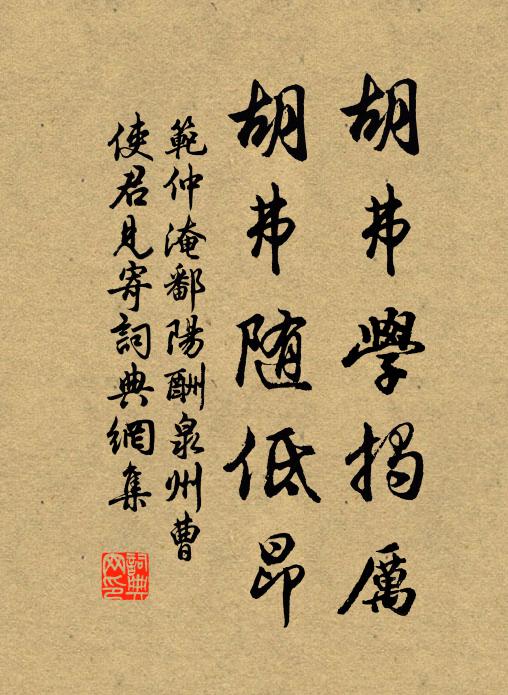 胡弗學揭厲
胡弗随低昂
範仲淹鄱陽酬泉州曹
使君見寄詞典網集
詞典
网印